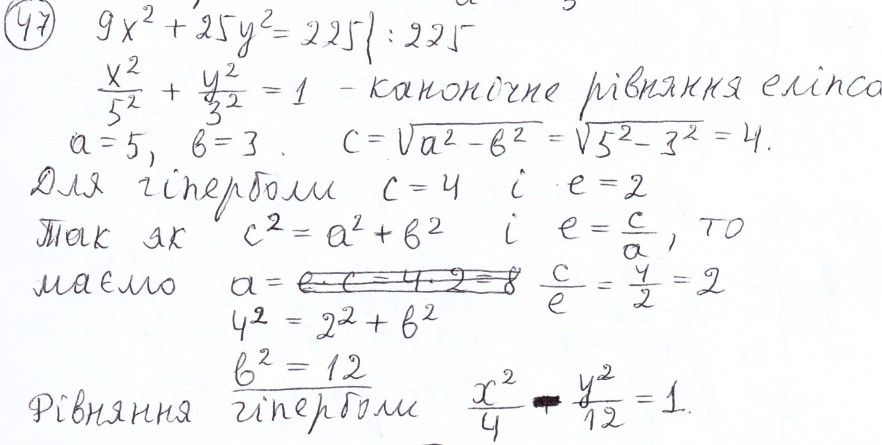 47 9x² + 25y² = 225 | : 225
x²/5² + y²/3² = 1 – канонічне рівняння еліпса
a = 5, b = 3. c = √(a² – b²) = √(5² – 3²) = 4.
Для гіперболи c = 4 і e = 2
Так як c² = a² + b² і e = c/a, то
маємо a = ~~e · c = 4 · 2 = 8~~ c/e = 4/2 = 2
4² = 2² + b²
b² = 12
Рівняння гіперболи x²/4 - y²/12 = 1.